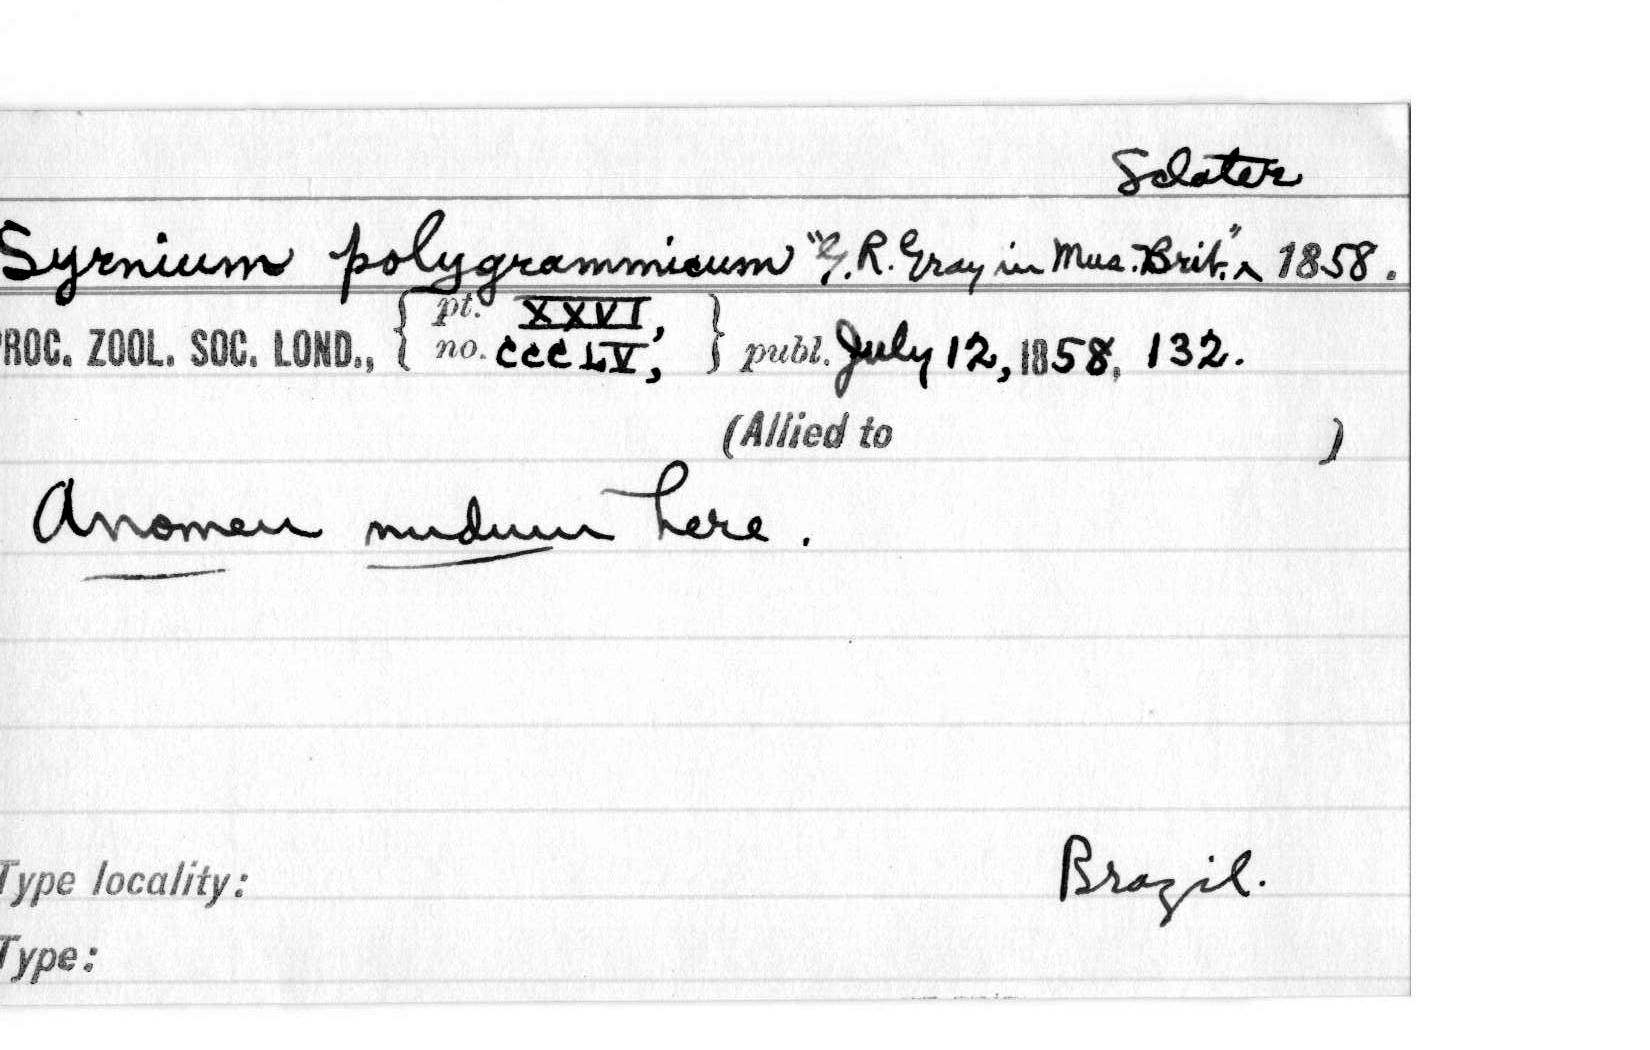 Sclater
Syrnium polygrammicum "G. R. Gray in Mus. Brit." ^ 1858.
PROC. ZOOL. SOC. LOND., { pt. XXVI, no. CCCLV, } publ. July 12, 1858, 132.
(Allied to )
A nomen nudum here.
Type locality: Brazil.
Type: